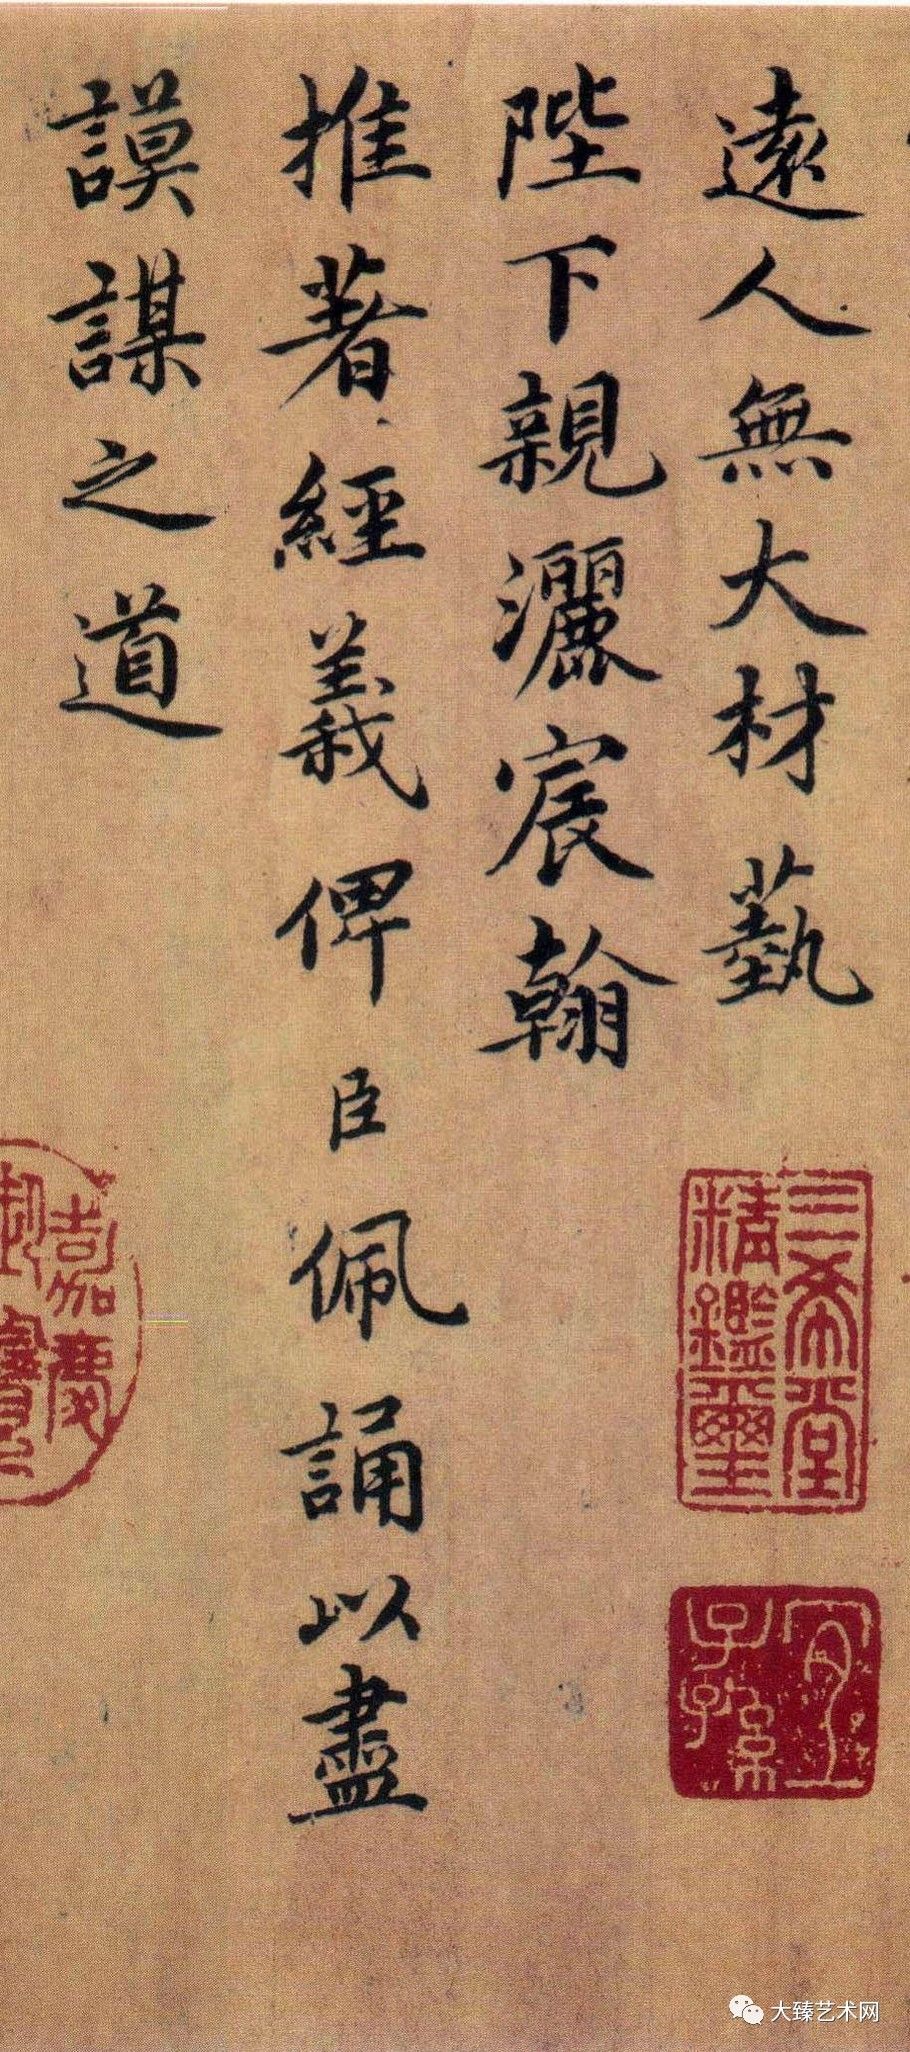 遠人無大材藝
陛下親灑宸翰
推著經義俾臣佩誦以盡
謨謀之道
三希堂
精鑑璽
宜
子孫
嘉慶
御
覽之
大臻艺术网